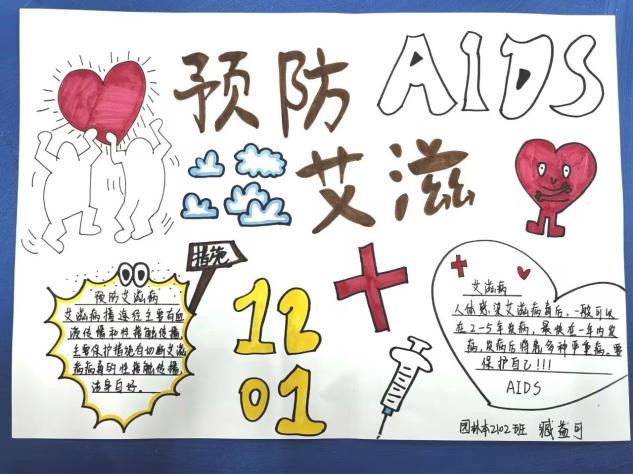 预防 AIDS
艾滋
措施
12
01
预防艾滋病
艾滋病播途径主要有血
液传播和性接触传播,
主要保护措施有切断艾滋
病病毒的性接触传播,
洁身自好。
艾滋病
人体感染艾滋病毒后,一般可以
在2-5年发病,最快在一年内发
病,发病后将患多种严重病,要
保护自己!!!
AIDS
园林本2102班 臧益可